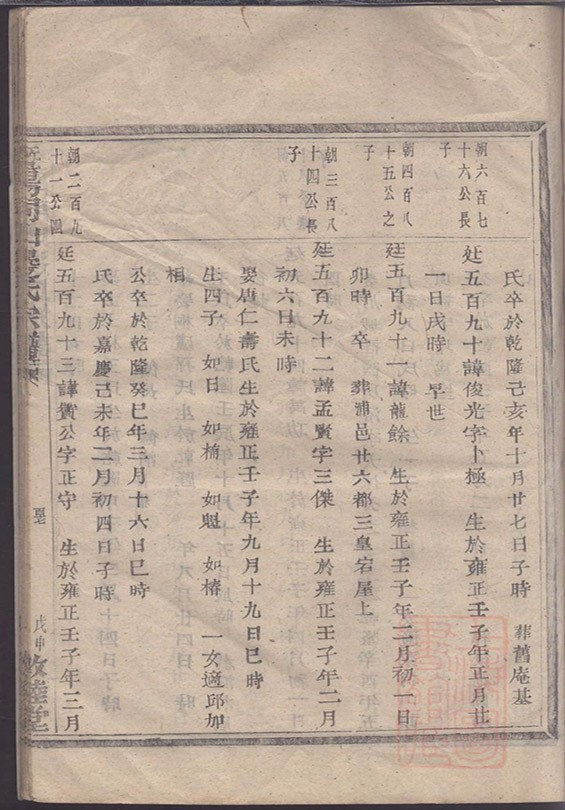 氏卒於乾隆己亥年十月廿七日子時 葬舊庵基
朝六百七十六公長子
廷五百九十諱俊光字卜極 生於雍正壬子年正月廿
一日戌時 早世
朝四百八十五公之子
廷五百九十一諱龍餘 生於雍正壬子年二月初一日
卯時 卒 葬浦邑廿六都三皇宕屋上
朝三百八十四公長子
廷五百九十二諱孟賢字三傑 生於雍正壬子年二月
初六日未時
娶唐仁壽氏生於雍正壬子年九月十九日巳時
生四子 如日 如楠 如魁 如椿 一女適邱加
相
公卒於乾隆癸巳年三月十六日巳時
氏卒於嘉慶己未年二月初四日子時
朝二百九十一公四
廷五百九十三諱贊公字正守 生於雍正壬子年三月
戊申 敦睦堂